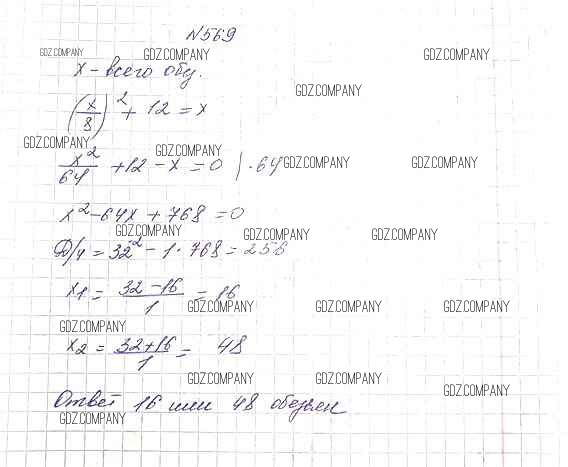 N569
GDZ.COMPANY GDZ.COMPANY GDZ.COMPANY
x - всего обез.
GDZ.COMPANY
(x/8)² + 12 = x
GDZ.COMPANY GDZ.COMPANY
x²/64 + 12 - x = 0 | · 64
GDZ.COMPANY GDZ.COMPANY
x² - 64x + 768 = 0
GDZ.COMPANY GDZ.COMPANY GDZ.COMPANY
D/4 = 32² - 1 · 768 = 256
x1 = (32 - 16)/1 = 16
GDZ.COMPANY GDZ.COMPANY GDZ.COMPANY
GDZ.COMPANY
x2 = (32 + 16)/1 = 48
GDZ.COMPANY GDZ.COMPANY GDZ.COMPANY
Ответ 16 или 48 обезьян
GDZ.COMPANY